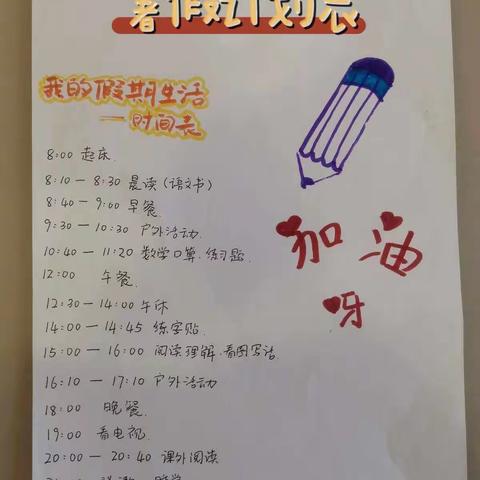 暑假计划表
我的假期生活
—时间表
8:00 起床.
8:10 — 8:30 晨读(语文书)
8:40 — 9:00 早餐
9:30 — 10:30 户外活动.
10:40 — 11:20 数学口算.练习题.
12:00 午餐.
12:30 — 14:00 午休
14:00 — 14:45 练字贴.
15:00 — 16:00 阅读理解.看图写话.
16:10 — 17:10 户外活动
18:00 晚餐.
19:00 看电视.
20:00 — 20:40 课外阅读
加油
呀